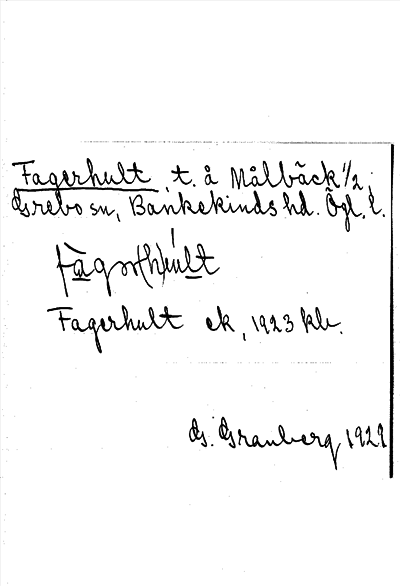 Fagerhult, t. å Målbäck 1/2,
Grebo sn, Bankekinds hd. Ögl. l.
fàgər(h)ult
Fagerhult ek, 1923 kb.
G. Granberg 1929